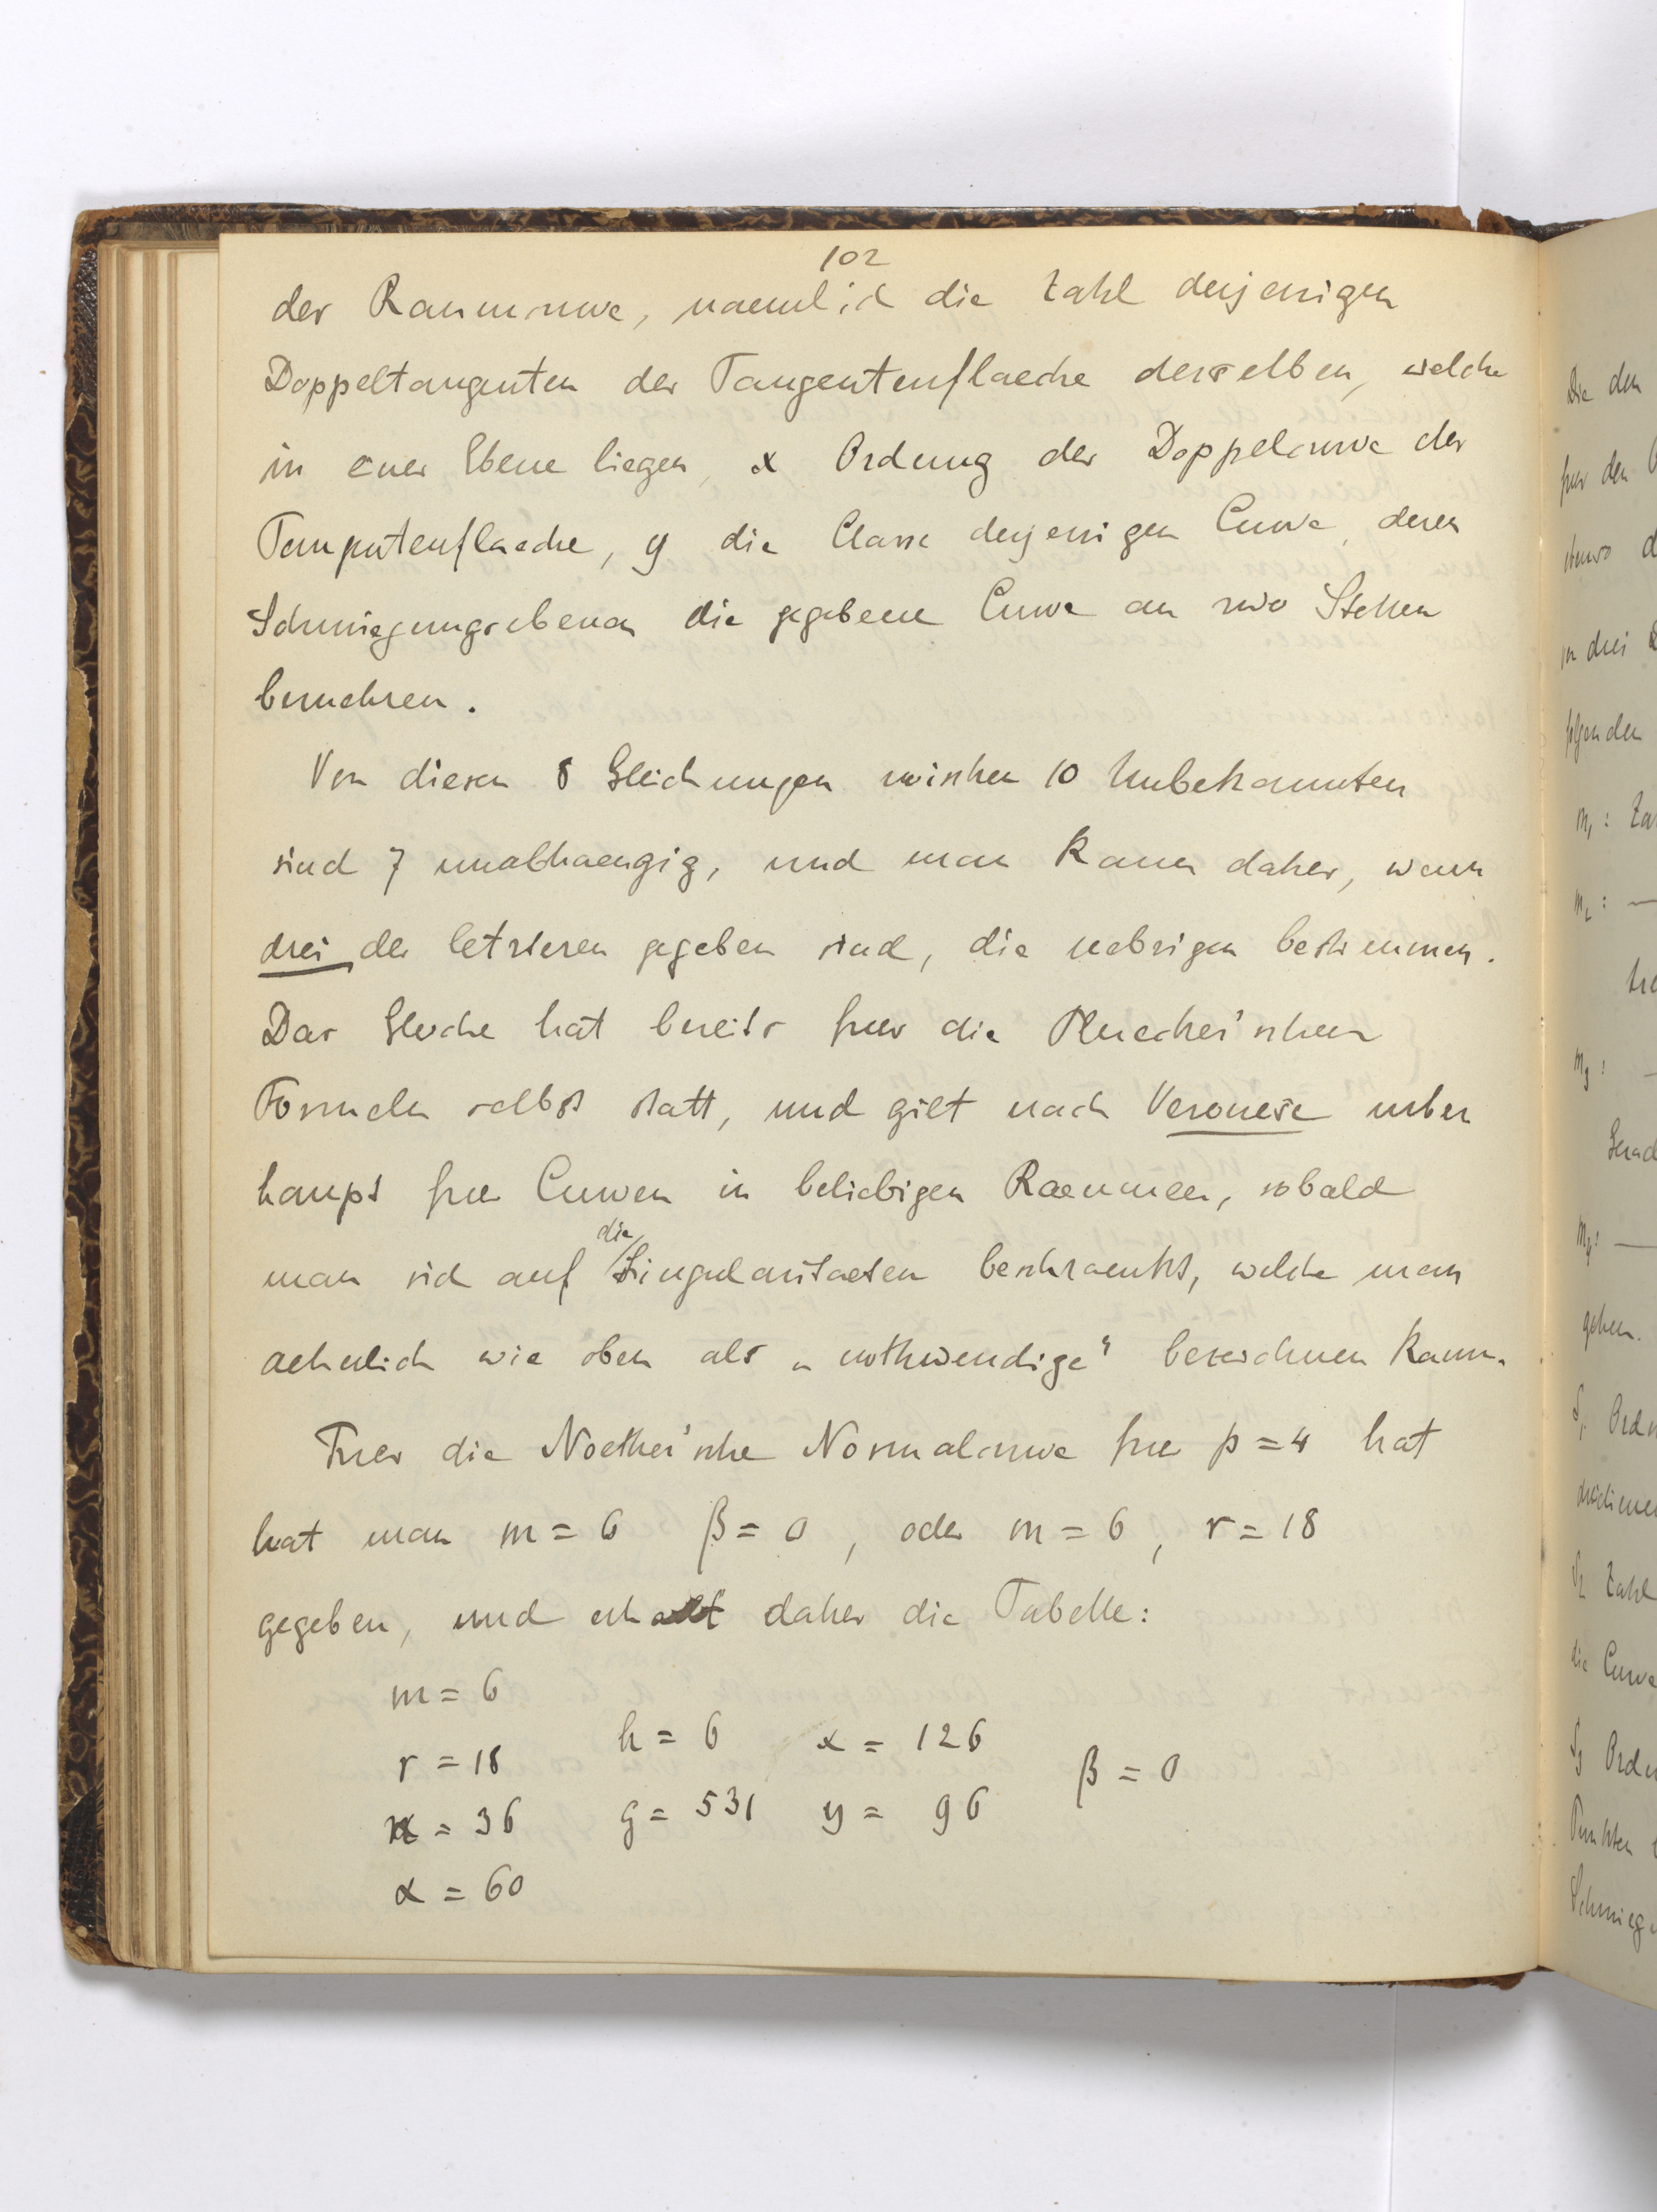 102
der Raumcurve, naemlich die Zahl derjenigen
Doppeltangenten der Tangentenflaeche derselben, welche
in einer Ebene liegen, x Ordnung der Doppelcurve der
Tangentenflaeche, y die Classe derjenigen Curve, deren
Schmiegungsebenen die gegebene Curve an zwo Stellen
beruehren.
Von diesen 8 Gleichungen zwischen 10 Unbekannten
sind 7 unabhaengig, und man kann daher, wenn
drei der letzteren gegeben sind, die uebrigen bestimmen.
Das Gleiche hat bereits fuer die Pluecker'schen
Formeln selbst statt, und gilt nach Veronese ueber
haupt fuer Curven in beliebigen Raeumen, sobald
man sich auf die Singularitaeten beschraenkt, welche man
aehnlich wie oben als „nothwendige“ bezeichnen kann.
Fuer die Noether'sche Normalcurve fuer p = 4 hat
hat man m = 6 β = 0, oder m = 6, r = 18
gegeben, und erhaelt daher die Tabelle:
m = 6
r = 18 h = 6 x = 126 β = 0
n = 36 g = 531 y = 96
α = 60
Die den
fuer den
ebenso d
in drei
folgenden
m₁ : Za
m₂ : —
m₃ : —
Gerad
m₄ : —
gehen.
S₁ Ordn
dreidimen
S₂ Zahl
die Curve
S₃ Ordn
Punkten
Schmieg